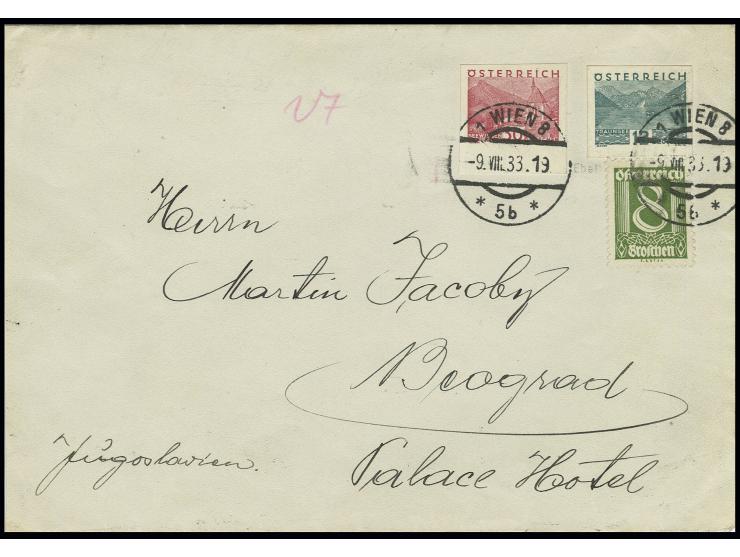 V7
ÖSTERREICH
ÖSTERREICH
30
TRAUNSEE
12
1 WIEN 8
-9.VIII.33.19
* 5b *
1 WIEN 8
-9.VIII.33.19
5b *
Österreich
8
Groschen
Herrn
Martin Jacoby
Beograd
Jugoslavien.
Palace Hotel